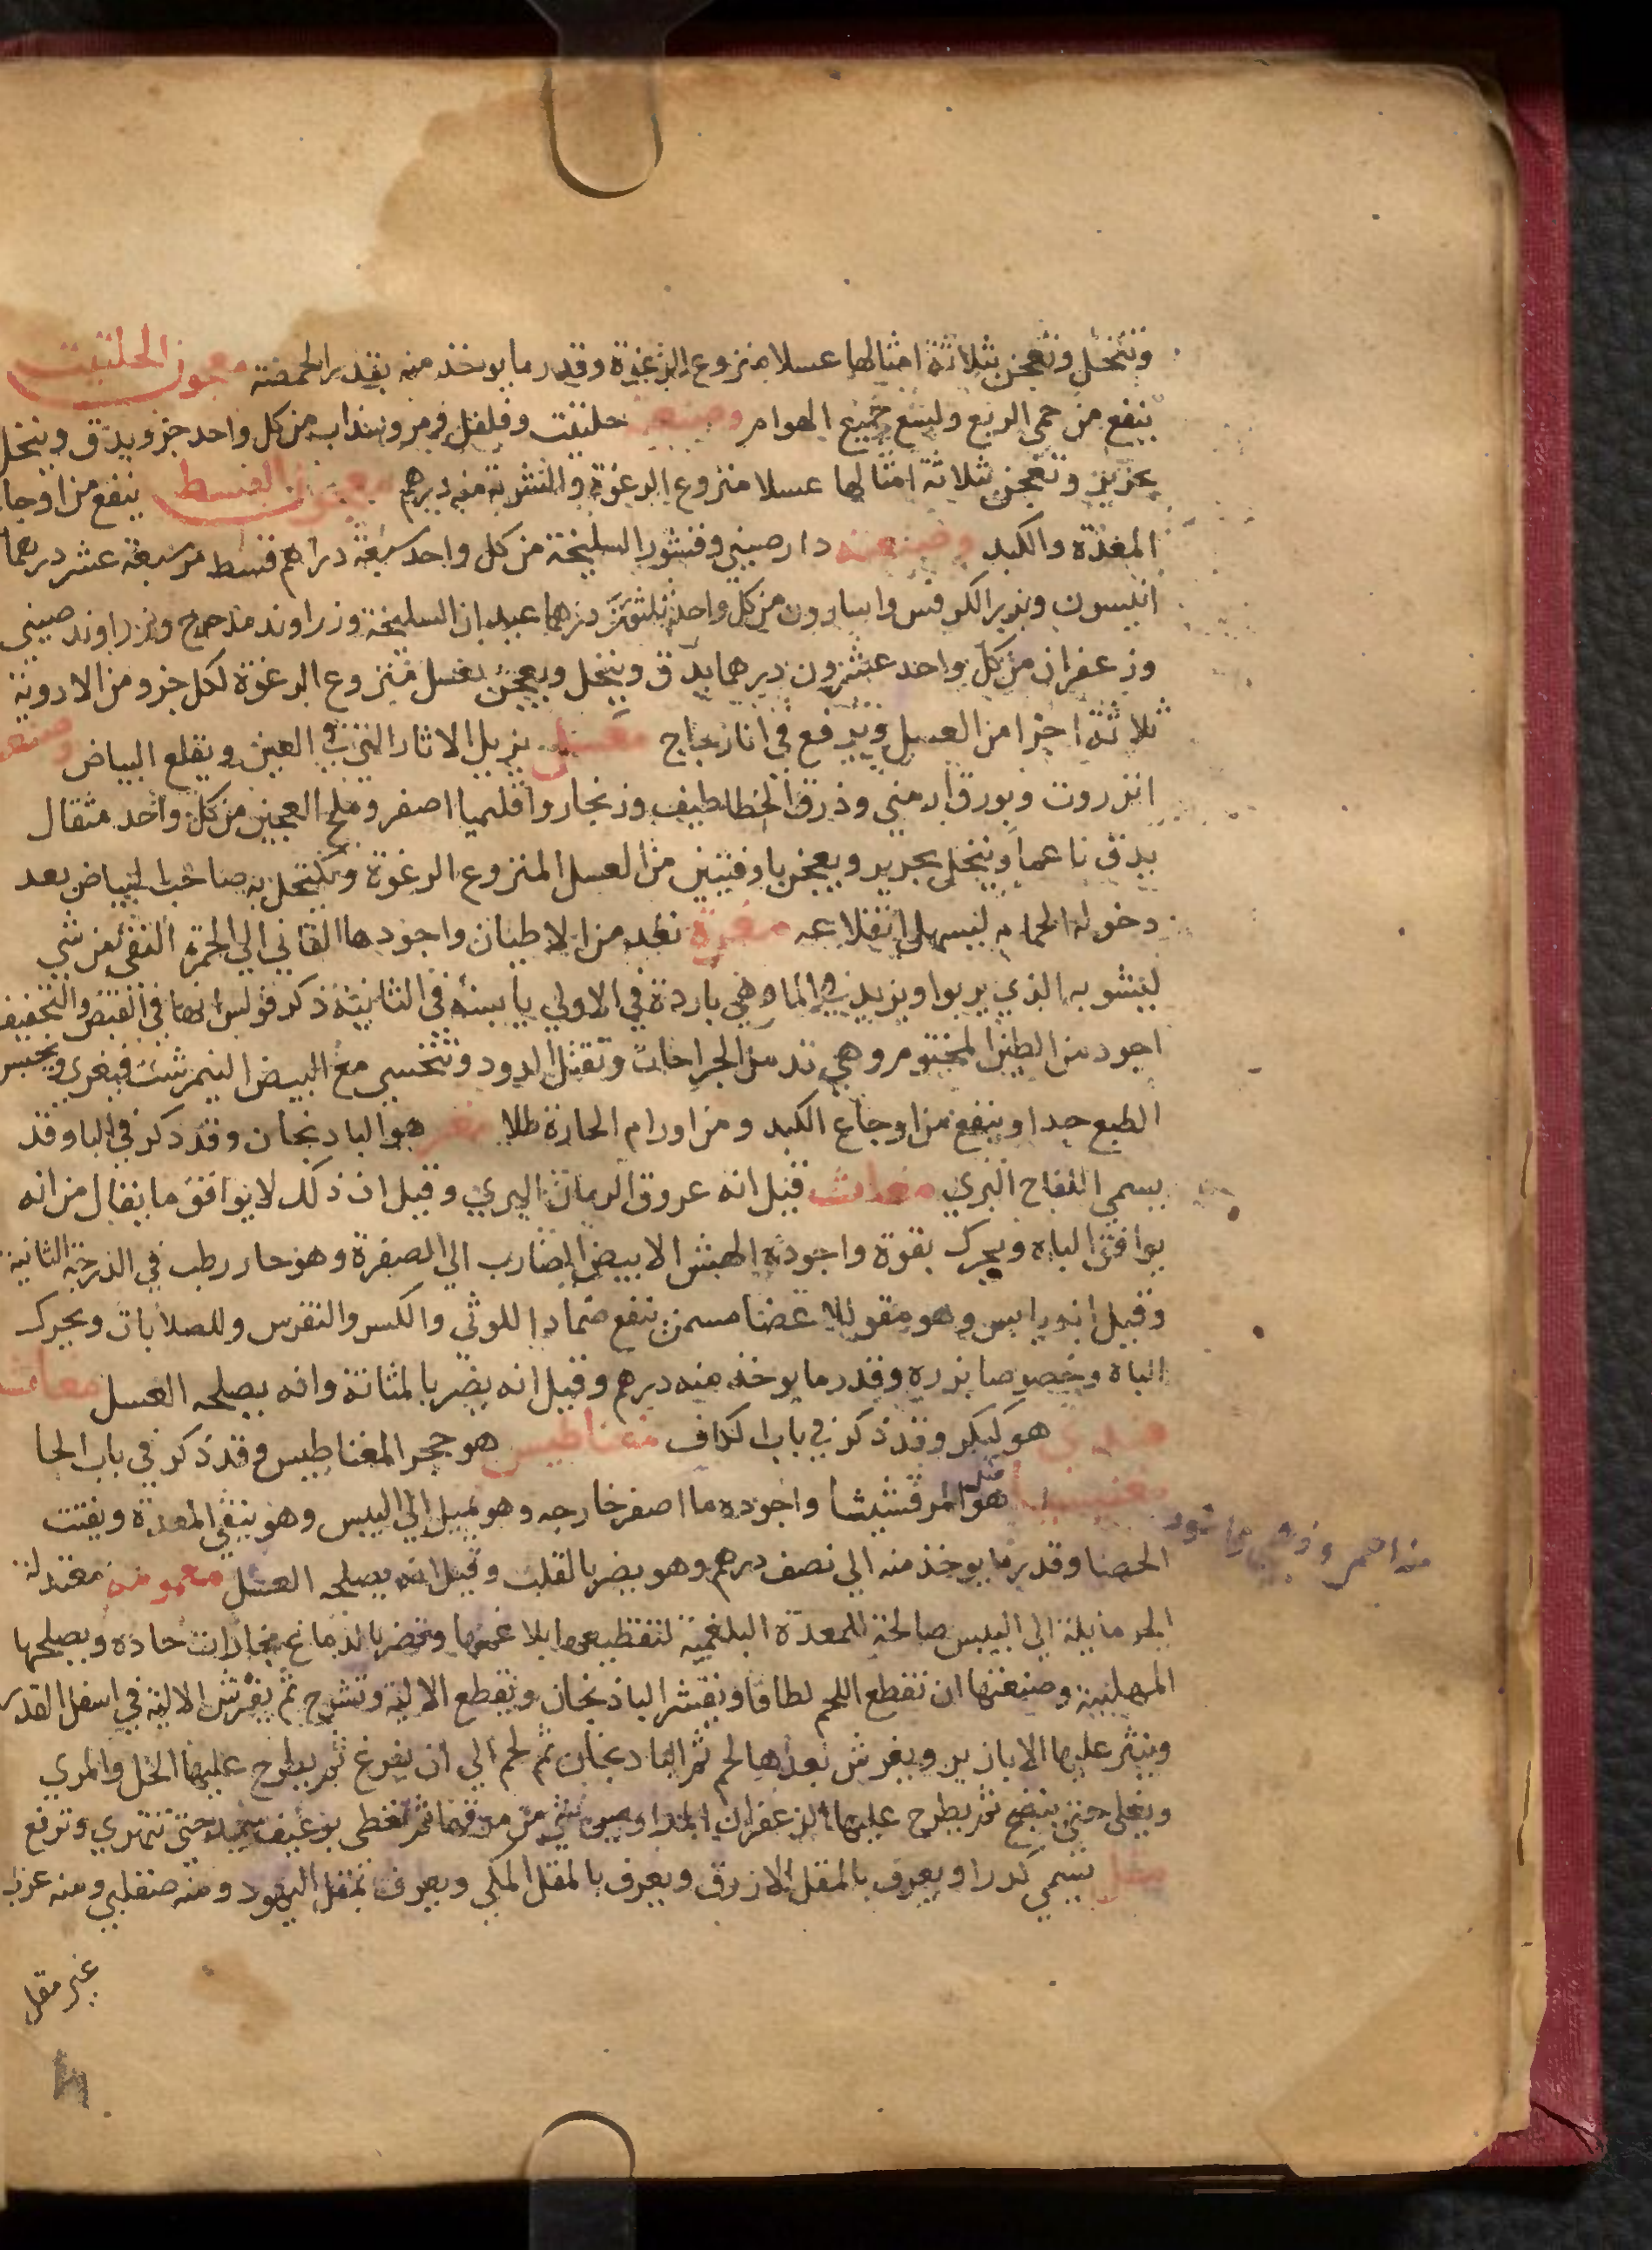 وتنخل وتعجن بثلاثة امثالها عسلا منزوع الرغوة وقدر ما يوخذ منه بقدر الحمصة معجون الحلتيت
ينفع من حمي الربع ولسع جميع الهوام وصنعته حلتيت وفلفل ومر وسذاب من كل واحد جزو يدق وينخل
بحرير وتعجن بثلاثة امثالها عسلا منزوع الرغوة والشربة منه درهم معجون القسط ينفع من اوجاع
المعدة والكبد وصنعته دارصيني وقشور السليخة من كل واحد سبعة دراهم قسط مر سبعة عشر درهما
انيسون وبزر الكرفس واسارون من كل واحد درهما عيدان السليخة وزراوند مدحرج وزراوند صيني
وزعفران من كل واحد عشرون درهما يدق وينخل ويعجن بعسل منزوع الرغوة لكل جزو من الادوية
ثلاثة اجزا من العسل وترفع في انا زجاج معسل يزيل الاثار التي في العين ويقلع البياض وصنعته
انزروت وبورق ارمني وذرق الخطاطيف وزنجار واقليميا اصفر وملح العجين من كل واحد مثقال
يدق ناعما وينخل بحرير ويعجن باوقيتين من العسل المنزوع الرغوة ويكتحل به صاحب البياض بعد
دخوله الحمام ليسهل انقلاعه مغرة تعد من الاطيان واجودها القاني الي الحمرة النقي من شي
يشوبه الذي يربوا ويزيد في الما وهي باردة في الاولي يابسة في الثانية ذكر قولس انها في القبض والتجفيف
اجود من الطين المختوم وهي تدمل الجراحات وتقتل الدود وتتحسي مع البيض النيمرشت فيغري ويحبس
الطبع جدا وينفع من اوجاع الكبد ومن اورام الحارة طلا مغد هو البادنجان وقد ذكر في البا وقد
يسمي اللفاح البري مغاث قيل انه عروق الرمان البري وقيل ان ذلك لا يوافق ما يقال من انه
يوافق الباه ويحرك بقوة واجوده الهش الابيض الضارب الي الصفرة وهو حار رطب في الدرجة الثانية
وقيل انه يابس وهو مقو للاعضا مسمن ينفع ضمادا للوثي والكسر والنقرس وللصلابات ويحرك
الباه وخصوصا بزره وقدر ما يوخذ منه درهم وقيل انه يضر بالمثانة وانه يصلحه العسل مغاث
هندي هو كيكر وقد ذكر في باب الكاف مغناطيس هو حجر المغناطيس وقد ذكر في باب الحا
مغنيسيا هو مثل المرقشيشا واجوده ما اصفر خارجه وهو يميل الي اليبس وهو ينقي المعدة ويفتت
الحصا وقدر ما يوخذ منه الي نصف درهم وهو يضر بالقلب وقيل انه يصلحه العسل مغمومة معتدلة
الحر مايلة الي اليبس صالحة للمعدة البلغمية لتقطيعها بلاغمها وتضر بالدماغ بخارات حاده ويصلحها
المهلبية وصنعتها ان تقطع اللحم لطافا ويقشر الباذنجان ويقطع الالية وتشرح ثم يفرش الالية في اسفل القدر
وينثر عليها الابازير ويفرش بعدها لحم ثم البادنجان ثم لحم الي ان يفرغ ثم يطرح عليها الخل والمري
ويغلي حتي ينضج ثم يطرح عليها الزعفران ثم تغطي برغيف حتي تتهري وترفع
مقل يسمي كدرا ويعرف بالمقل الازرق ويعرف بالمقل المكي ويعرف بمقل اليهود ومنه صقلبي ومنه عربي